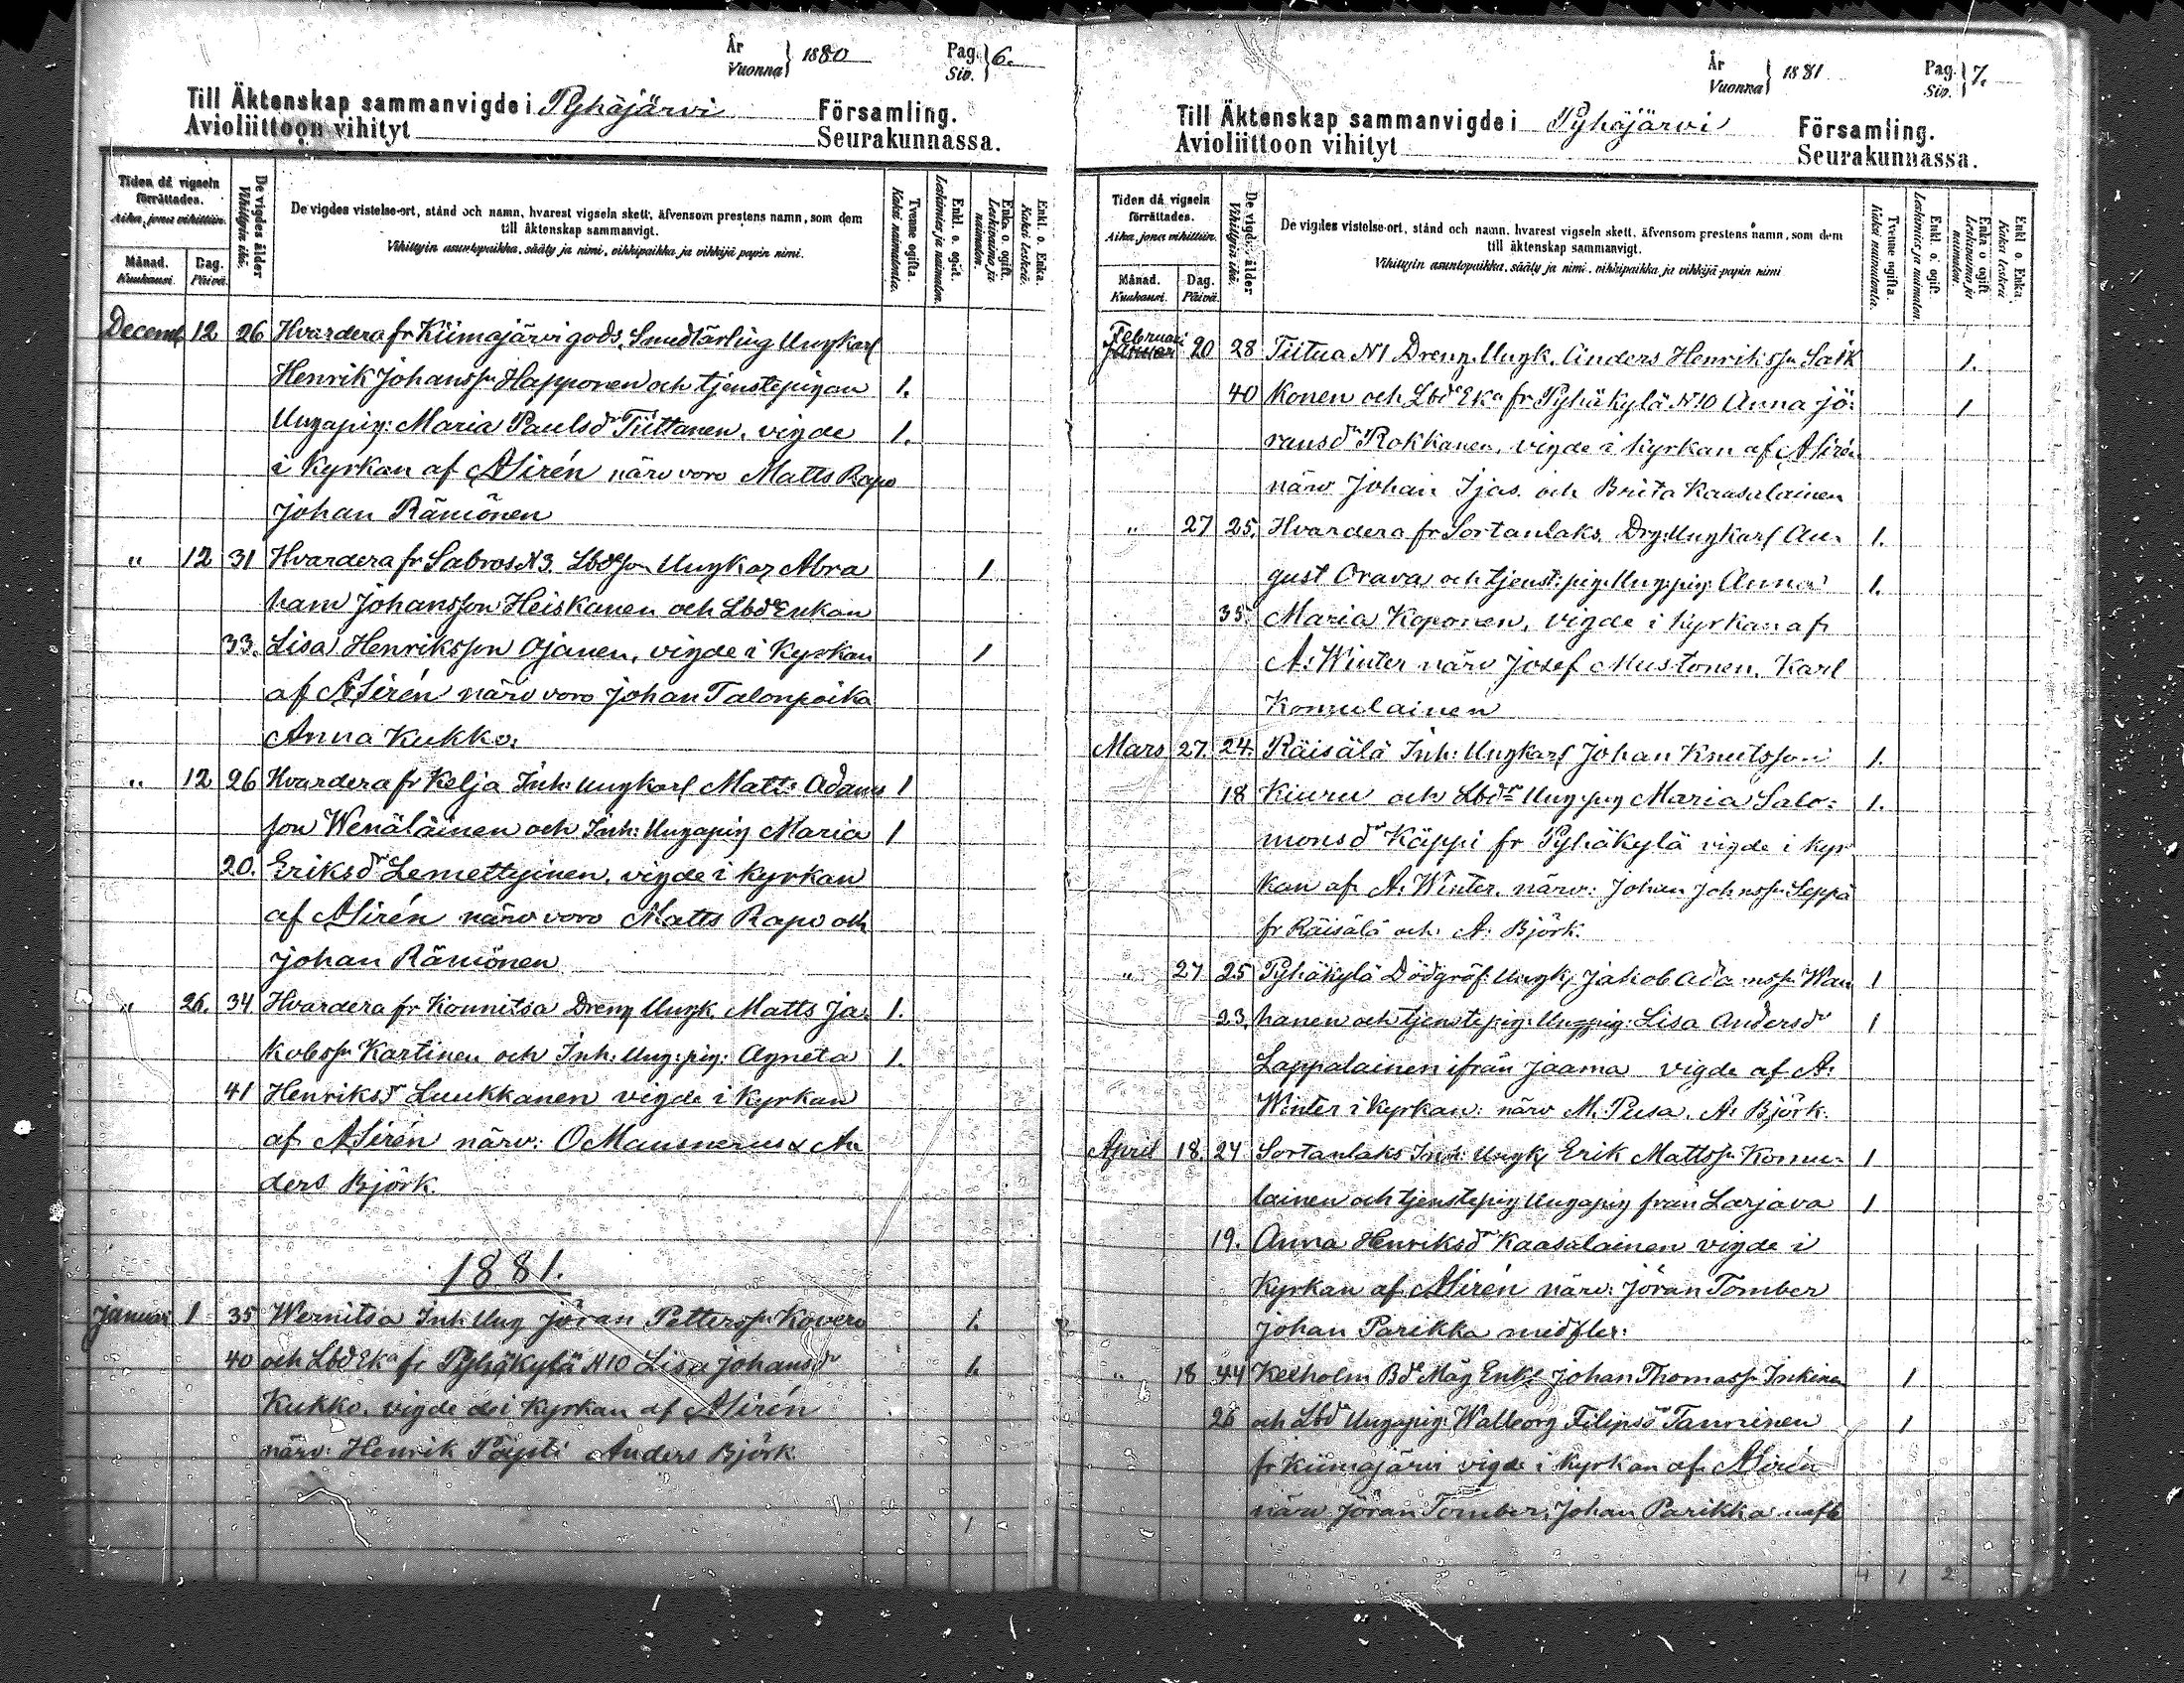 År
Vuonna } 1880
Pag.
Siv. } 6.
Till Äktenskap sammanvigde i Pyhäjärvi Församling.
Avioliittoon vihityt Seurakunnassa.
Tiden då vigseln förrättades.
Aika, jona vihittiin.
Månad.
Kuukausi.
Dag.
Päivä.
De vigdes ålder
Vihittyin ikä.
De vigdes vistelse-ort, stånd och namn, hvarest vigseln skett, äfvensom prestens namn, som dem
till äktenskap sammanvigt.
Vihittyin asuntopaikka, sääty ja nimi, vihkipaikka ja vihkijä papin nimi.
Tvenne ogifta.
Kaksi naimatonta.
Enkl. o. ogift.
Leskimies ja naimaton.
Enka o. ogift.
Leskivaimo ja naimaton.
Enkl. o. Enka.
Kaksi leskeä.
Decemb 12 26 Hvardera fr Kiimajärvi gods, Smedlärling Ungkarl
Henrik Johansson Happonen och tjenstepigan 1.
Ungapig: Maria Paulsdr Tiittanen, vigde 1.
i Kyrkan af A Sirén närv voro Matts Rapo
Johan Rämönen
" 12 31 Hvardera fr Sabros N3. Lbdeson Ungkar Abra 1
ham Johansson Heiskanen och Lbde Enkan
33. Lisa Henriksson Ojanen, vigde i Kyrkan 1
af A Sirén närv voro Johan Talonpoika
Anna Kukko.
" 12 26 Hvardera fr Kelja Inh: Ungkarl Matts Adams 1
son Wenäläinen och Inh: Ungapig Maria 1
20. Eriksdr Lemettyinen, vigde i kyrkan
af A Sirén närv voro Matts Rapo och
Johan Rämönen
" 26. 34 Hvardera fr Konnitsa Dreng Ungk. Matts Ja- 1.
kobsson Kartinen och Inh: Ung:pig: Agneta 1.
41 Henriksdr Luukkanen vigde i Kyrkan
af A Sirén närv: O Mausnerus & An
ders Björk.
1881.
Januari 1 35 Wernitsa Inh Ung Jöran Pettersson Kovero 1.
40 och Lbd Eka fr Pyhäkylä N10 Lisa Johansdr 1.
Kukko. vigde de i Kyrkan af A Sirén
närv: Henrik Pöysti Anders Björk.
1
År
Vuonna } 1881
Pag.
Siv. } 7.
Till Äktenskap sammanvigde i Pyhäjärvi Församling.
Avioliittoon vihityt Seurakunnassa.
Tiden då vigseln förrättades.
Aika, jona vihittiin.
Månad.
Kuukausi.
Dag.
Päivä.
De vigdes ålder
Vihittyin ikä.
De vigdes vistelse-ort, stånd och namn, hvarest vigseln skett, äfvensom prestens namn, som dem
till äktenskap sammanvigt.
Vihittyin asuntopaikka, sääty ja nimi, vihkipaikka ja vihkijä-papin nimi
Tvenne ogifta.
Kaksi naimatonta.
Enkl. o. ogift.
Leskimies ja naimaton.
Enka o ogift
Leskivaimo ja naimaton.
Enkl o. Enka.
Kaksi leskeä
Februari
Januar 20 28 Tiitua N1 Dreng. Ungk. Anders Henriksson Saik 1.
40 konen och Lbde Eka fr Pyhäkylä N10 Anna Jö- 1
ransdr Rokkanen, vigde i kyrkan af A Sirén
närv Johan Ijas. och Brita Kaasalainen
" 27 25. Hvardera fr Sortanlaks. Drg: Ungkarl Au- 1.
gust Orava och tjenst:pig: Ung:pig: Anna 1.
35. Maria Koponen, vigde i kyrkan af
A: Winter närv Josef Mustonen, Karl
Komulainen
Mars 27. 24. Räisälä Inh: Ungkarl Johan Knutsson 1.
18 Kiuru och Lbde Ung:pig Maria Salo- 1.
monsdr Käppi fr Pyhäkylä vigde i kyr
kan af A. Winter. närv: Johan Johnsson Seppä
fr Räisälä och A: Björk.
" 27 25 Pyhäkylä Dödgräf: Ungk, Jakob Adamsson Wan 1
23. hanen och tjenstepig: Ungpig: Lisa Andersdr 1
Lappalainen ifrån Jaama vigde af A:
Winter i Kyrkan: närv M. Pusa. A. Björk.
April 18. 24 Sortanlaks Inh: Ungk Erik Mattsson Komu- 1
lainen och tjenstepig Ungapig från Larjava 1
19. Anna Henriksdr Kaasalainen vigde i
Kyrkan af A Sirén närv: Jöran Tomber
Johan Parikka med fler:
" 18 44 Kexholm Bde Måg Enkl Johan Thomasson Inkinen 1
26 och Lbde Ungapig: Walborg Filipsdr Tanninen 1
fr Kiimajärvi vigde i kyrkan af A Sirén
närv Jöran Tomber, Johan Parikka mfl
4 1 2